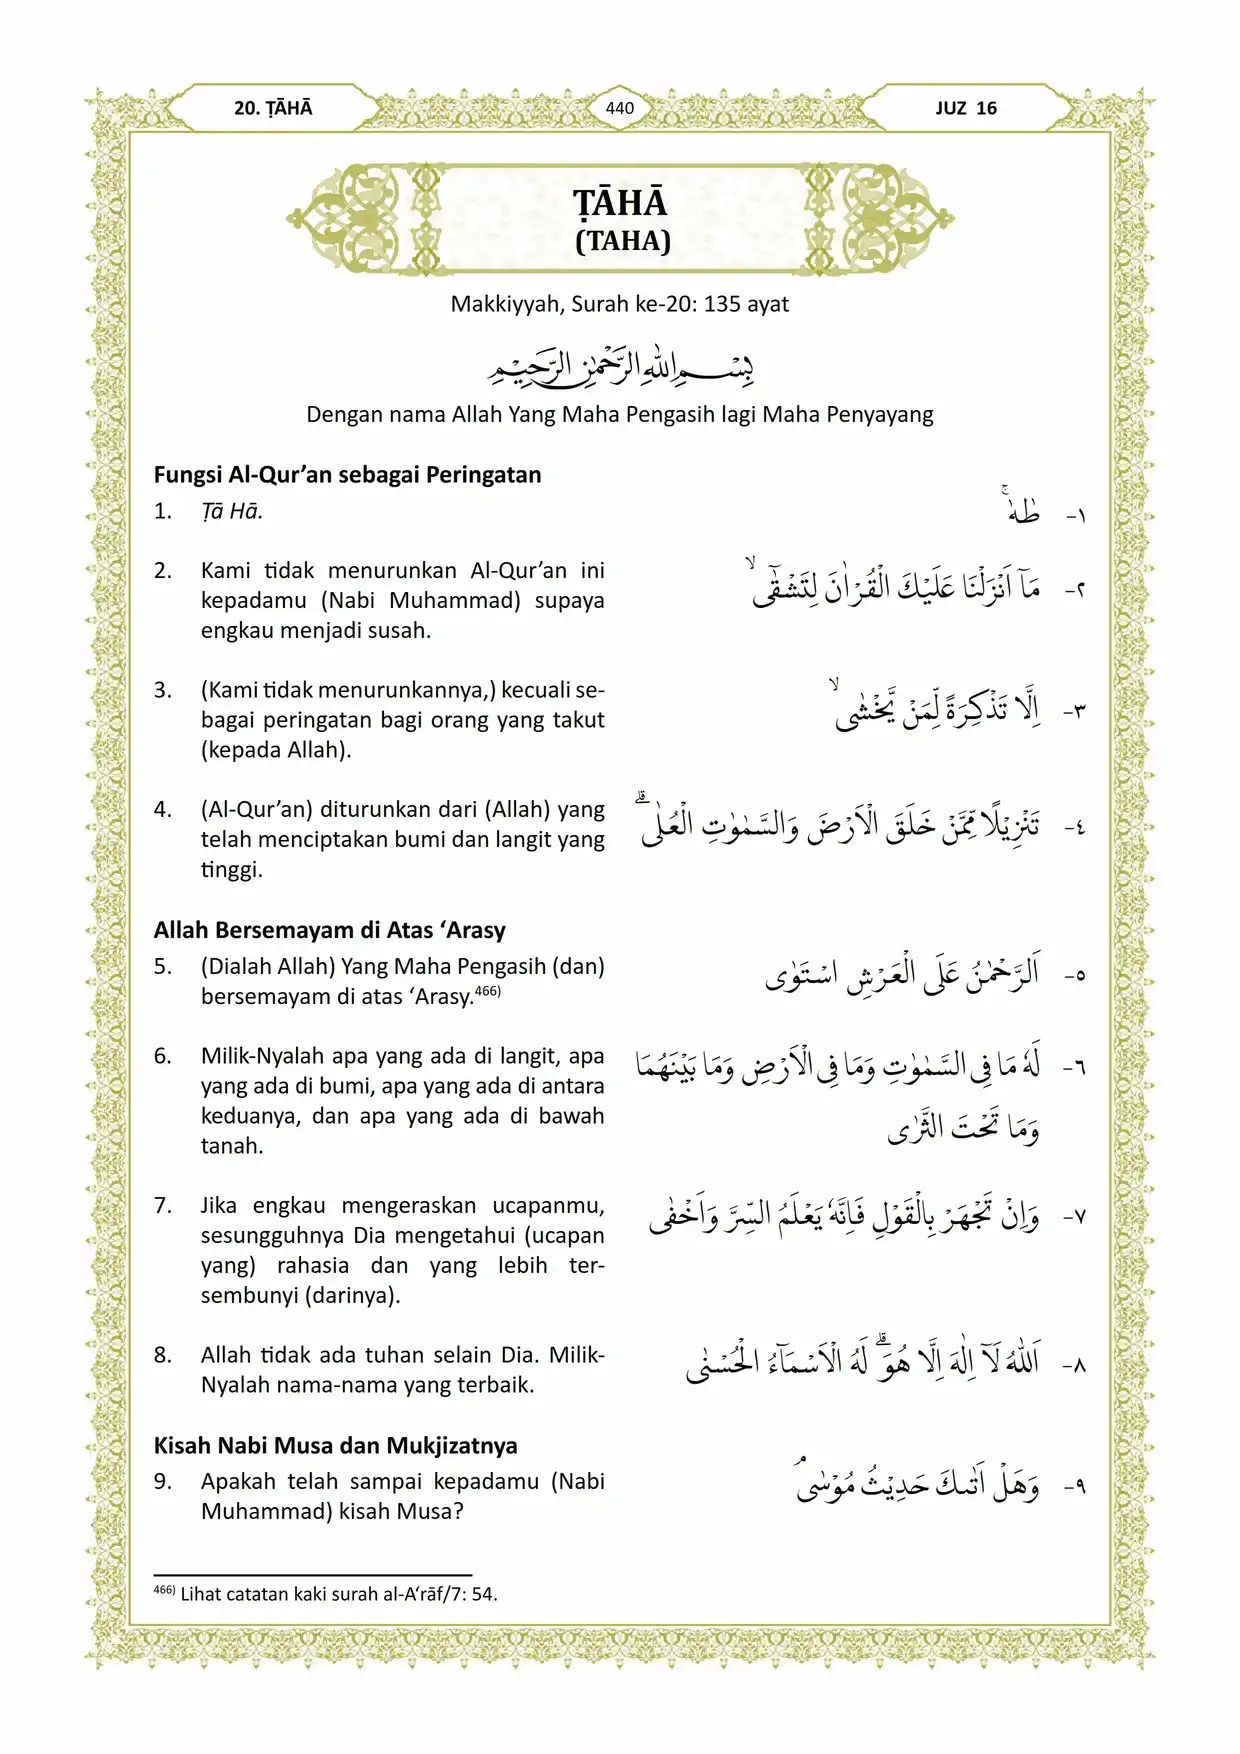 20. ṬĀHĀ
440
JUZ 16
ṬĀHĀ
(TAHA)
Makkiyyah, Surah ke-20: 135 ayat
بِسْمِ اللّٰهِ الرَّحْمٰنِ الرَّحِيْمِ
Dengan nama Allah Yang Maha Pengasih lagi Maha Penyayang
Fungsi Al-Qur’an sebagai Peringatan
1. Ṭā Hā.
١- طٰهٰ ۚ
2. Kami tidak menurunkan Al-Qur’an ini
kepadamu (Nabi Muhammad) supaya
engkau menjadi susah.
٢- مَآ اَنْزَلْنَا عَلَيْكَ الْقُرْاٰنَ لِتَشْقٰٓى ۙ
3. (Kami tidak menurunkannya,) kecuali se-
bagai peringatan bagi orang yang takut
(kepada Allah).
٣- اِلَّا تَذْكِرَةً لِّمَنْ يَّخْشٰى ۙ
4. (Al-Qur’an) diturunkan dari (Allah) yang
telah menciptakan bumi dan langit yang
tinggi.
٤- تَنْزِيْلًا مِّمَّنْ خَلَقَ الْاَرْضَ وَالسَّمٰوٰتِ الْعُلٰى ۗ
Allah Bersemayam di Atas ‘Arasy
5. (Dialah Allah) Yang Maha Pengasih (dan)
bersemayam di atas ‘Arasy.466)
٥- اَلرَّحْمٰنُ عَلَى الْعَرْشِ اسْتَوٰى
6. Milik-Nyalah apa yang ada di langit, apa
yang ada di bumi, apa yang ada di antara
keduanya, dan apa yang ada di bawah
tanah.
٦- لَهٗ مَا فِى السَّمٰوٰتِ وَمَا فِى الْاَرْضِ وَمَا بَيْنَهُمَا
وَمَا تَحْتَ الثَّرٰى
7. Jika engkau mengeraskan ucapanmu,
sesungguhnya Dia mengetahui (ucapan
yang) rahasia dan yang lebih ter-
sembunyi (darinya).
٧- وَاِنْ تَجْهَرْ بِالْقَوْلِ فَاِنَّهٗ يَعْلَمُ السِّرَّ وَاَخْفٰى
8. Allah tidak ada tuhan selain Dia. Milik-
Nyalah nama-nama yang terbaik.
٨- اَللّٰهُ لَآ اِلٰهَ اِلَّا هُوَ ۗ لَهُ الْاَسْمَاۤءُ الْحُسْنٰى
Kisah Nabi Musa dan Mukjizatnya
9. Apakah telah sampai kepadamu (Nabi
Muhammad) kisah Musa?
٩- وَهَلْ اَتٰىكَ حَدِيْثُ مُوْسٰى ۘ
466) Lihat catatan kaki surah al-A‘rāf/7: 54.